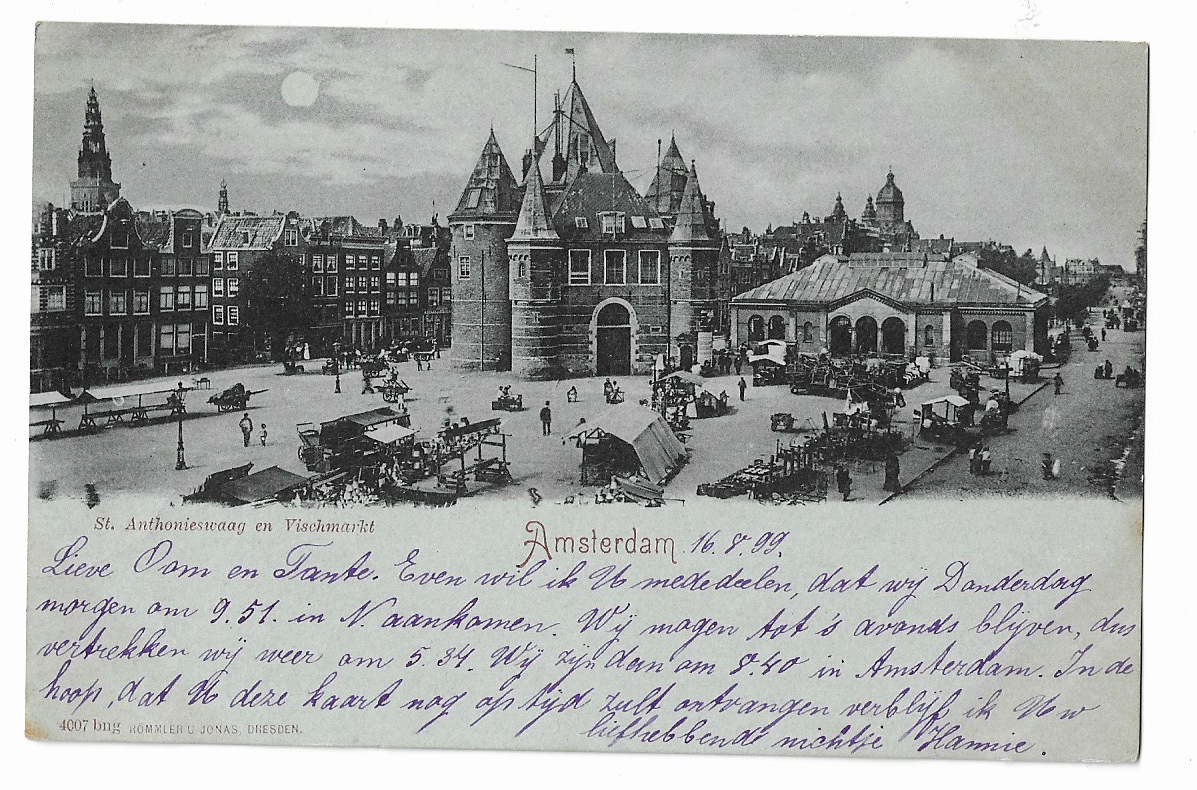 St. Anthonieswaag en Vischmarkt
Amsterdam 16.8.99.
Lieve Oom en Tante. Even wil ik U mededeelen, dat wij Donderdag
morgen om 9.51. in N. aankomen. Wij mogen tot 's avonds blijven, dus
vertrekken wij weer om 5.34. Wij zijn dan om 8.40 in Amsterdam. In de
hoop, dat U deze kaart nog op tijd zult ontvangen verblijf ik Uw
liefhebbende nichtje Hannie.
4007 bng RÖMMLER U JONAS, DRESDEN.